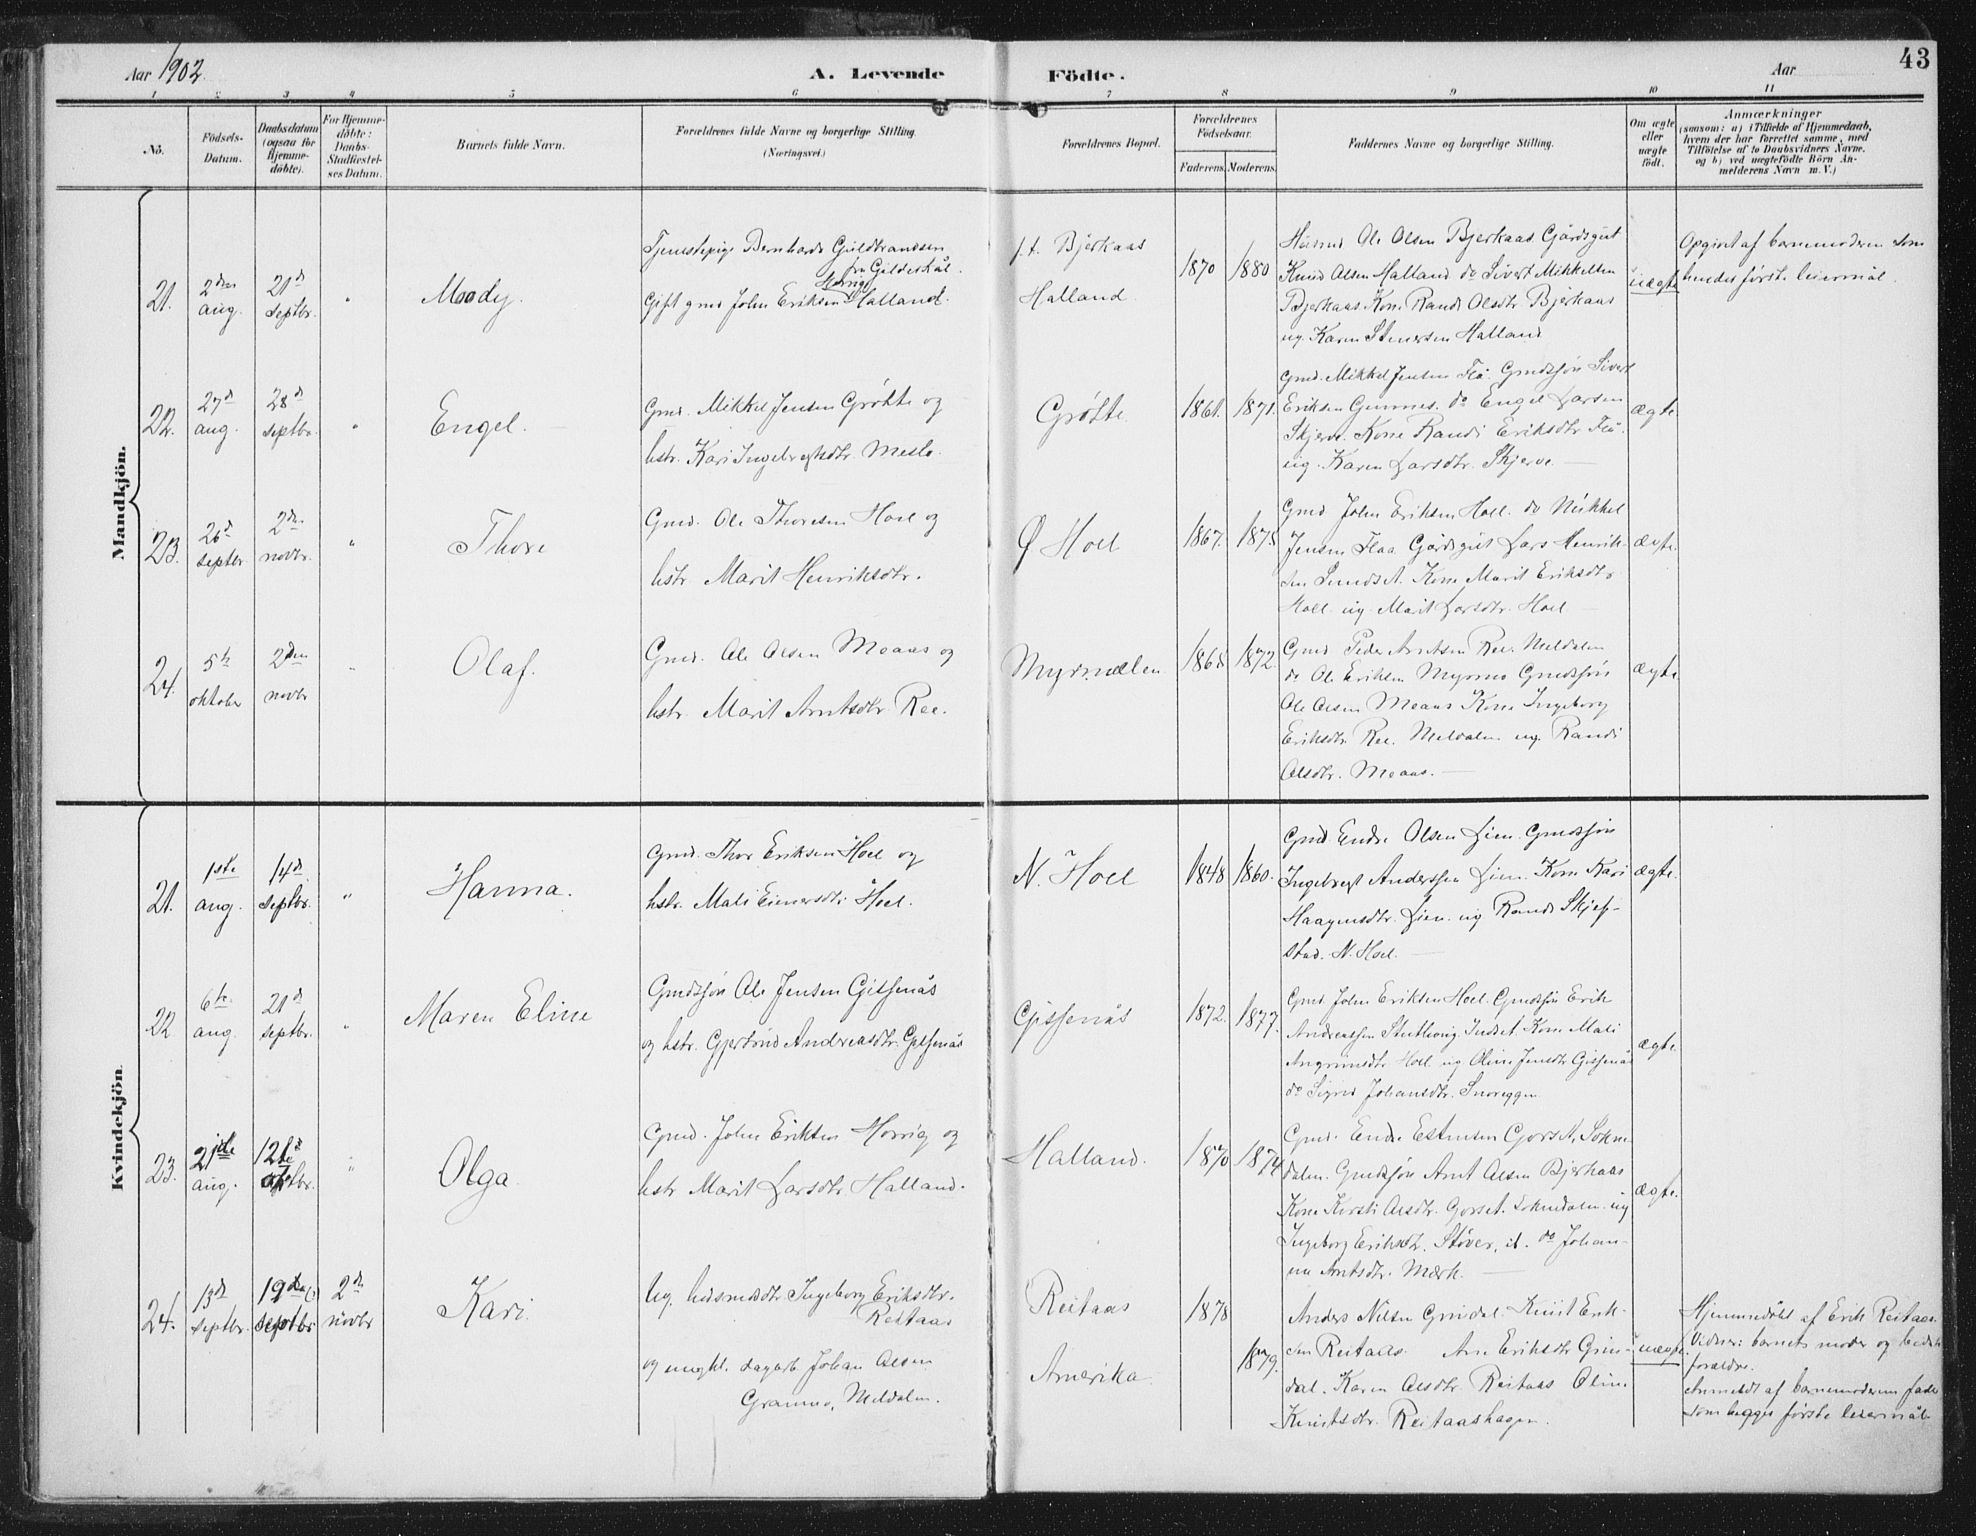 Aar 1902
A. Levende Födte.
Aar
43
1 2 3 4 5 6 7 8 9 10 11
No.
Födsels-
Datum.
Daabsdatum
(ogsaa for
Hjemme-
döbte).
For Hjemme-
döbte:
Daabs-
Stadfæstel-
ses Datum.
Barnets fulde Navn.
Forældrenes fulde Navne og borgerlige Stilling.
(Næringsvei.)
Forældrenes Bopæl.
Forældrenes
Födselsaar.
Faderens. Moderens.
Faddernes Navne og borgerlige Stilling.
Om ægte
eller
uægte
født.
Anmærkninger
(saasom: a) i Tilfælde af Hjemmedaab,
hvem der har forrettet samme, med
Tilföielse af to Daabsvidners Navne,
og b) ved uægtefödte Börn An-
melderens Navn m. V.)
Mandkjön.
21.
2den
aug.
21d
septbr.
"
Moody.
Tjenestepige Bernharda Guldbrandsen
fra Gildeskål.
Horrig
Gift gmd John Eriksen Halland.
f.t. Bjerkaas
Halland.
1870 1880
Husmd Ole Olsen Bjerkaas Gårdsgut
Knud Olsen Halland do Sivert Mikkelsen
Bjerkaas. Kone Randi Olsdtr. Bjerkaas
ug. Karen Stenersen Halland
uægte
Opgivet af barnemoderen som
hendes første leiermål.
22.
27d
aug.
28d
septbr.
"
Engel.
Gmd. Mikkel Jensen Grøtte og
hstr. Kari Ingebrigtsdtr. Meslo.
Grøtte
1861. 1871.
Gmd. Mikkel Jensen Flå. Gmdssøn Sivert
Eriksen Gunnes. do Engel Larsen
Skjerve. Kone Randi Eriksdtr Flå.
ug. Karen Larsdtr. Skjerve.
ægte.
23.
26d
septbr
2den
novbr.
"
Thore
Gmd. Ole Thoresen Hoel og
hstr Marit Henriksdtr.
Ø Hoel
1867. 1875
Gmd John Eriksen Hoel. do Mikkel
Jensen Flaa Gårdsgut Lars Henrik-
sen Sundset. Kone Marit Eriksdtr
Hoel. ug. Marit Larsdtr. Hoel
ægte.
24.
5te
oktober
2den
novbr
"
Olaf.
Gmd. Ole Olsen Moaas og
hstr. Marit Arntsdtr Ree.
Myrmælen
1865 1872.
Gmd Peder Arntsen Ree. Meldalen
do Ole Eriksen Myrmo Gmdssøn
Ole Olsen Moaas Kone Ingeborg
Eriksdtr. Ree. Meldalen ug. Randi
Olsdtr. Moaas.
ægte
Kvindekjön
21.
1ste
aug.
14d
septbr.
"
Hanna.
Gmd. Thor Eriksen Hoel og
hstr. Mali Einersdtr Hoel.
N. Hoel
1848 1860.
Gmd. Endre Olsen Lien. Gmdssøn
Ingebregt Anderssen Lien. Kone Kari
Haagensdtr. Lien. ug Randi Skjef-
stad. N. Hoel.
ægte.
22
6te
aug.
21d
septbr.
"
Maren Eline
Gmdssøn Ole Jensen Gissenås
og hstr. Gjertrud Andreasdtr. Gissenås
Gissenås
1872. 1877.
Gmd John Eriksen Hoel. Gmdssøn Erik
Andreassen Indset. Kone Mali
Angrimsdtr Hoel. ug Oline Jensdtr Gissenås
do Sigrid Johansdtr. Snoreggen
ægte.
23.
21de
aug.
12te
oktbr.
"
Olga
Gmd. John Eriksen Horrig og
hstr Marit Larsdtr. Halland.
Halland.
1870 1874
Gmd. Endre Estensen Gorset, Sokne-
dalen. Gmdssøn Arnt Olsen Bjerkaas
Kone Kirsti Olsdtr. Gorset. Soknedalen. ug
Ingeborg Eriksdtr. Støver, do Johan-
na Arntsdtr. Mærk.
ægte.
24.
13d
septbr.
19de
septbr
2den
novbr
Kari.
Ug. husmdsdtr Ingeborg Eriksdtr.
Reitaas
og ungkl. dagarb Johan Olsen
Gramno, Meldalen.
Reitaas
Amerika.
1878
1879.
Anders Nilsen Grindal. Knut Erik-
sen Reitaas. Ane Eriksdtr Grin-
dal. Karen Olsdtr Reitaas Oline
Knutsdtr. Reitaashagen.
uægte.
Hjemmedöbt af Erik Reitaas.
Vidner: barnets moder og bedste
forældre.
Anmeldt af barnemoderens fader
som begges første leiermål